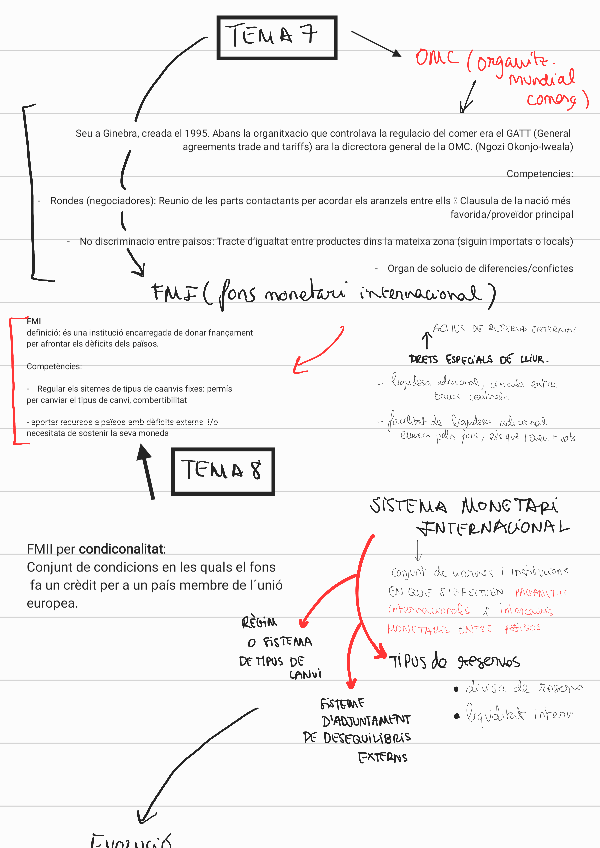 TEMA 7
OMC (organitz.
mundial
comerç)
Seu a Ginebra, creada el 1995. Abans la organitxacio que controlava la regulacio del comer era el GATT (General
agreements trade and tariffs) ara la dicrectora general de la OMC. (Ngozi Okonjo-Iweala)
Competencies:
- Rondes (negociadores): Reunio de les parts contactants per acordar els aranzels entre ells Clausula de la nació més
favorida/proveïdor principal
- No discriminacio entre països: Tracte d'igualtat entre productes dins la mateixa zona (siguin importats o locals)
- Organ de solucio de diferencies/confictes
FMI (fons monetari internacional)
FMI
definició: és una institució encarregada de donar fnançament
per afrontar els dèficits dels països.
Competències:
- Regular els sitemes de tipus de caanvis fixes: permís
per canviar el tipus de canvi, combertibilitat
- aportar recursos a països amb dèficits externs i/o
necesitata de sostenir la seva moneda
ACTIUS DE RESERVA
DRETS ESPECIALS DE LLIUR.
- liquidesa adicional, entre
- facultat de liquidesa adicional
TEMA 8
SISTEMA MONETARI
INTERNACIONAL
conjunt de normes i institucions
EN QUE
internacionals i
MONETARIS ENTRE PAÏSOS
FMII per condiconalitat:
Conjunt de condicions en les quals el fons
fa un crèdit per a un país membre de l´unió
europea.
RÈGIM
O SISTEMA
DE TIPUS DE
CANVI
TIPUS de reserves
• divisa de reserva
• liquiditat intern
SISTEME
D'ADJUNTAMENT
DE DESEQUILIBRIS
EXTERNS
Evolució